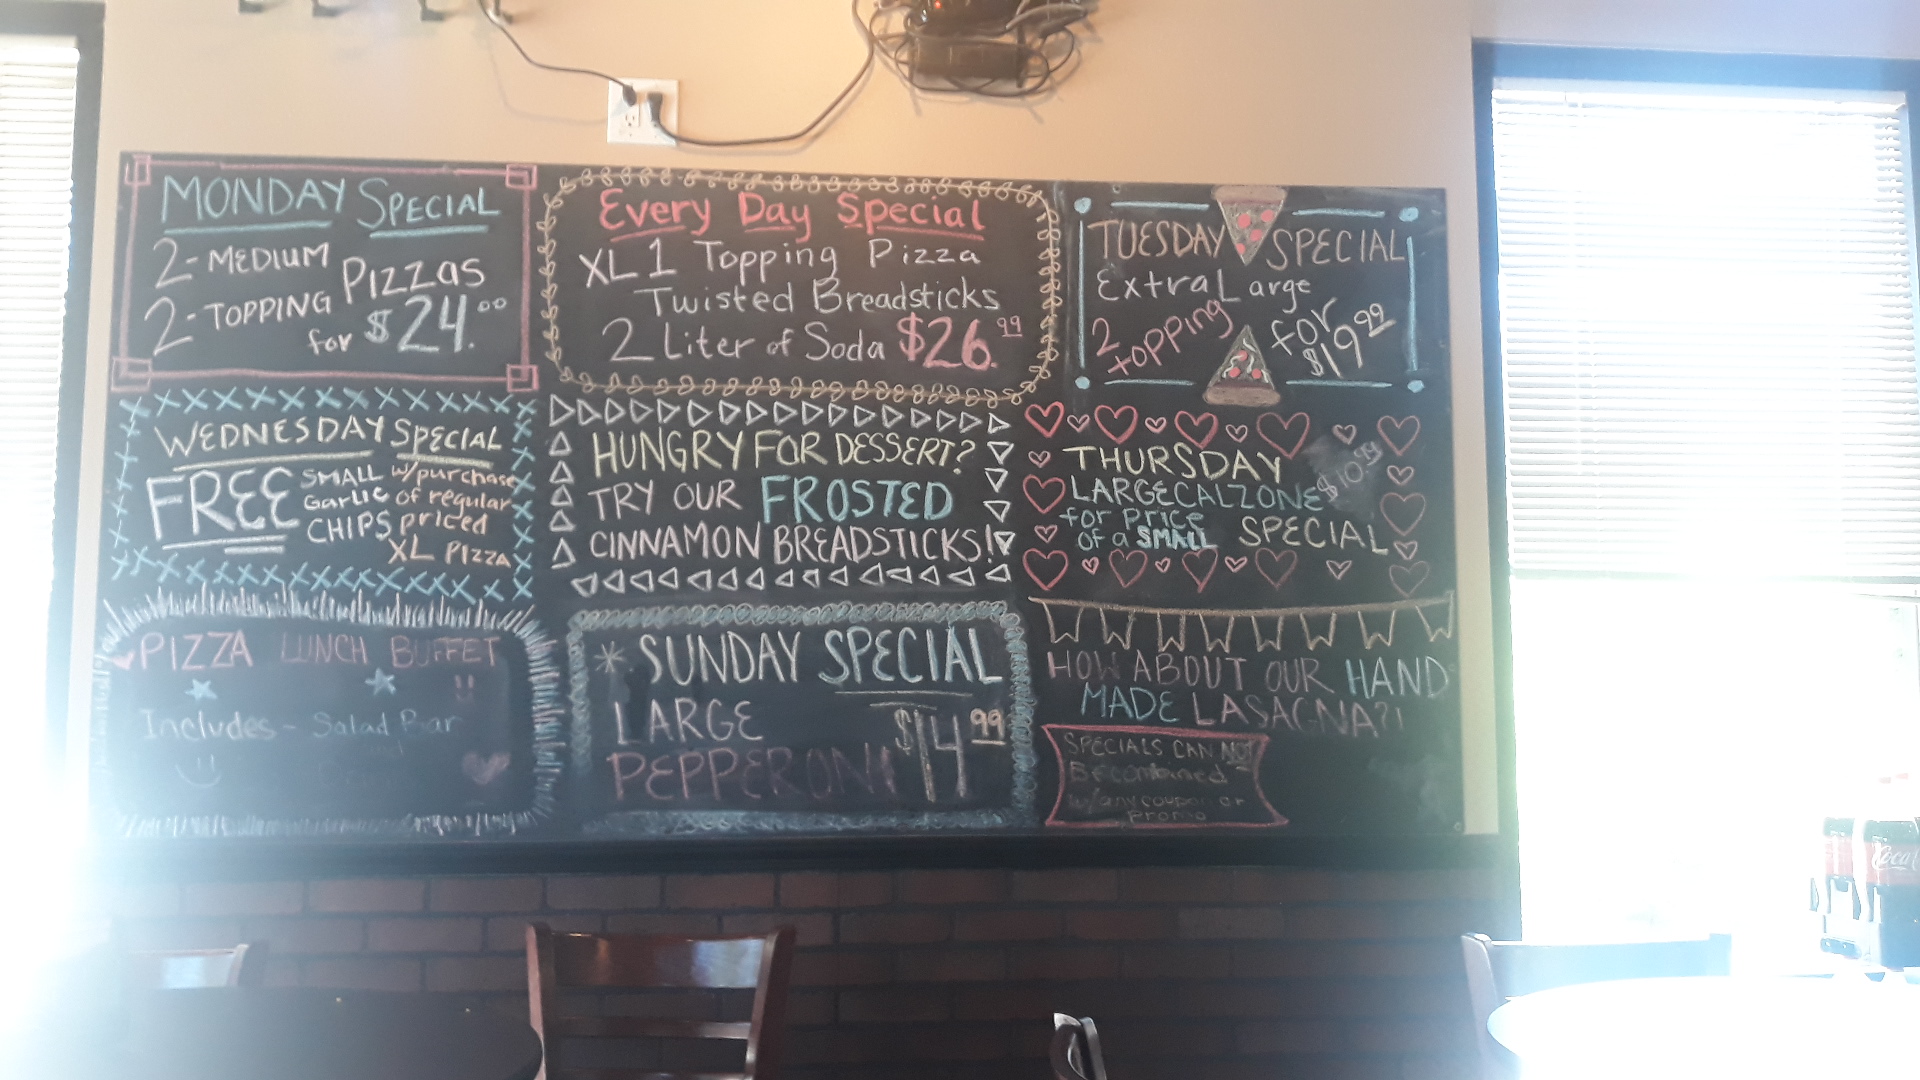 MONDAY SPECIAL
2-MEDIUM
2-TOPPING PIZZAS
for $24.00
Every Day Special
XL 1 Topping Pizza
Twisted Breadsticks
2 Liter of Soda $26.99
TUESDAY SPECIAL
Extra Large
2 topping for
$19.99
WEDNESDAY SPECIAL
FREE SMALL Garlic CHIPS
w/purchase
of regular
priced
XL PIZZA
HUNGRY FOR DESSERT?
TRY OUR FROSTED
CINNAMON BREADSTICKS!
THURSDAY
$10.99
LARGE CALZONE
for Price
of a SMALL SPECIAL
PIZZA LUNCH BUFFET
Includes - Salad Bar
* SUNDAY SPECIAL
LARGE
PEPPERONI $14.99
HOW ABOUT OUR HAND
MADE LASAGNA?!
SPECIALS CAN NOT
Be combined
w/any coupon or
Promo
Coca